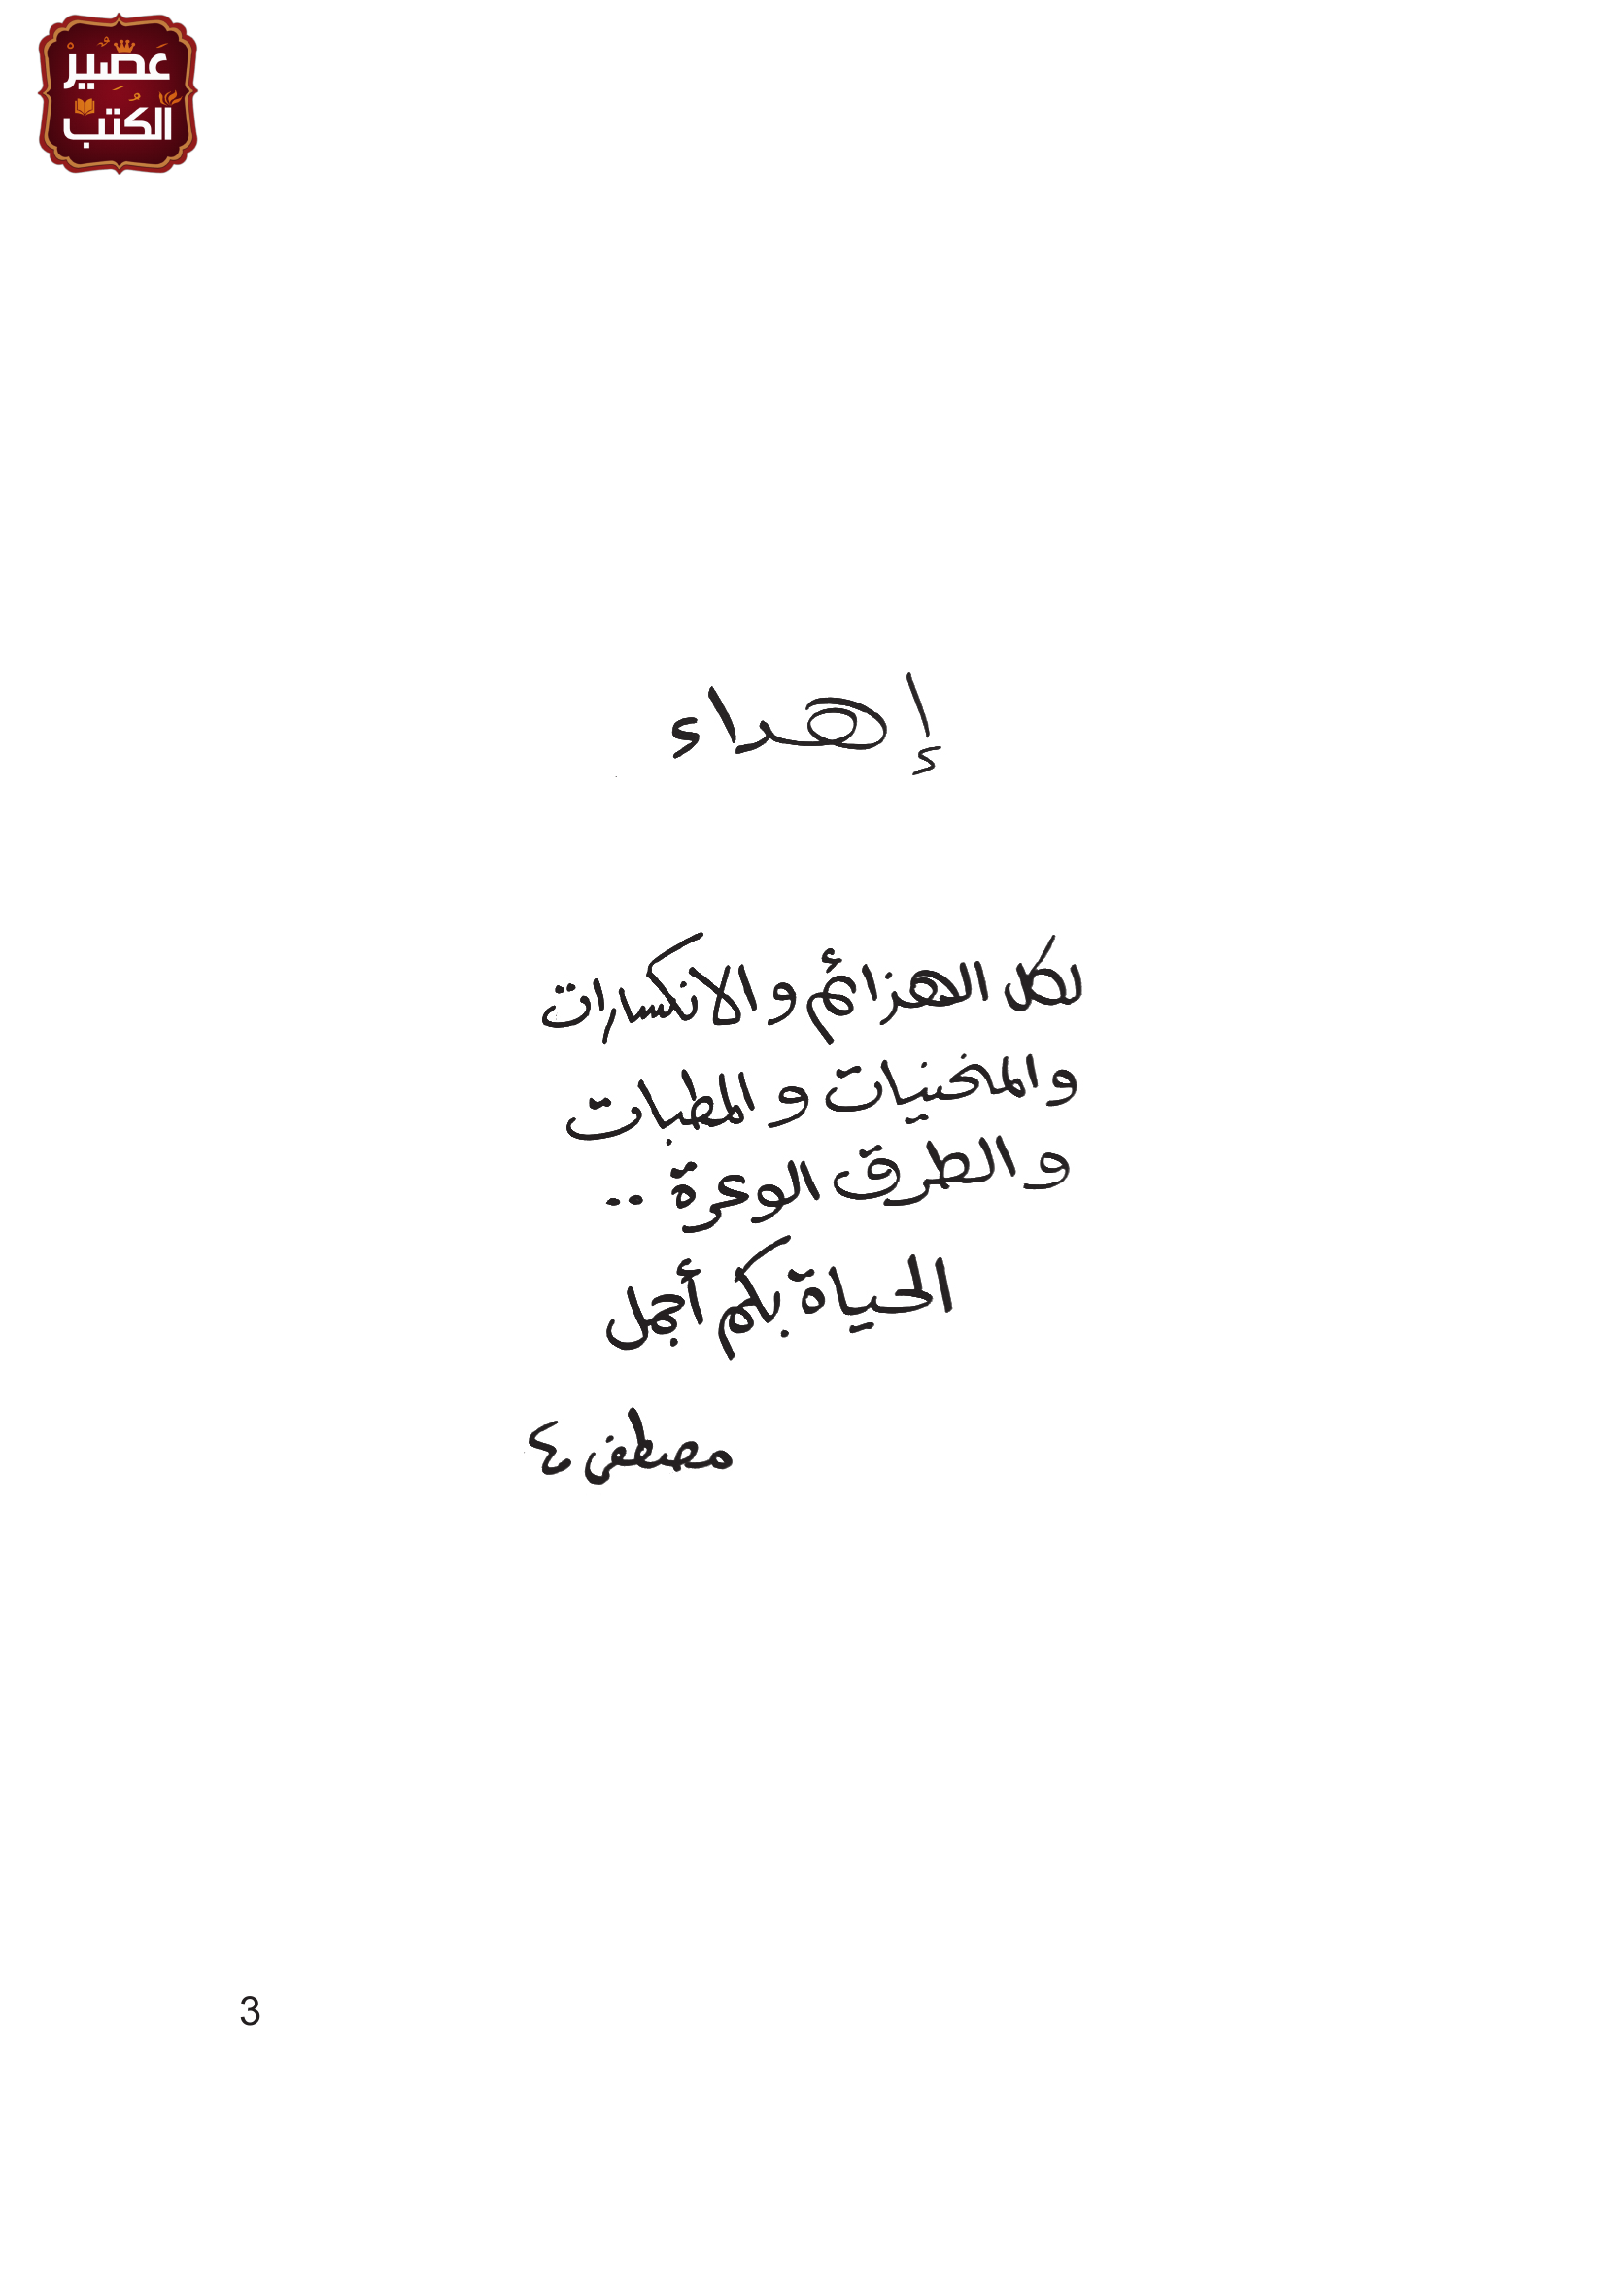 عَصِيرُ
الكُتُبْ
إهداء
لكل الهزائم والانكسارات
والمنحنيات والمطبات
والطرق الوعرة ..
الحياة بكم أجمل
مصطفى
3